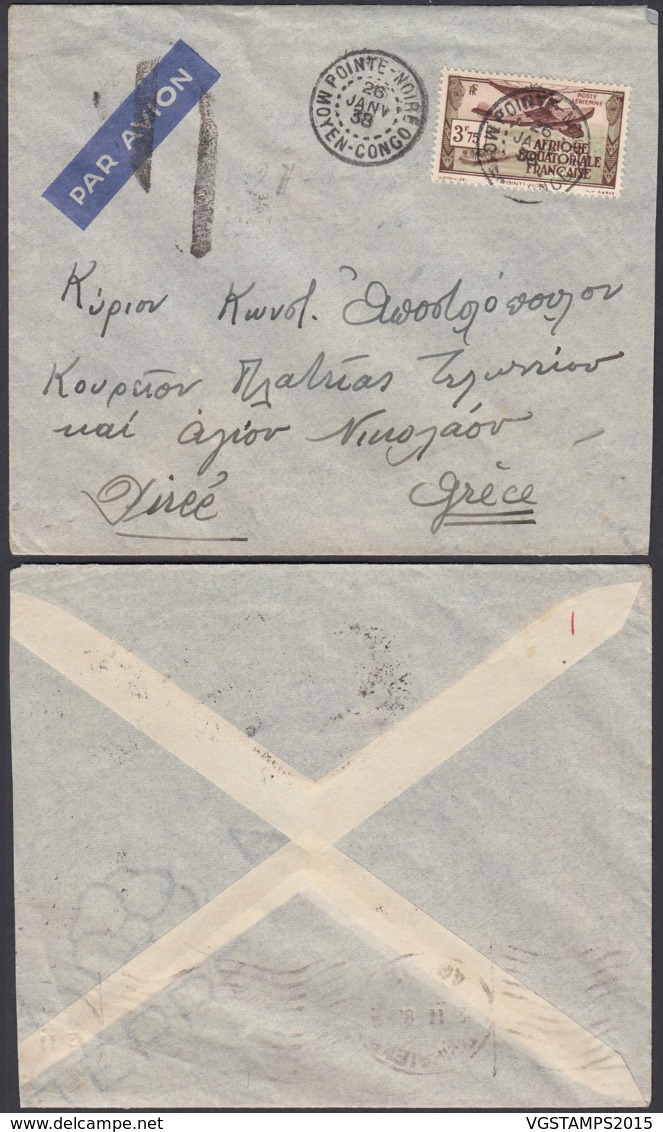 PAR AVION
POINTE-NOIRE
26
JANV
38
MOYEN-CONGO
RF POSTE AÉRIENNE
3F75
AFRIQUE
ÉQUATORIALE
FRANÇAISE
Κύριον Κωνστ. Αποστολόπουλον
Κουρείον Πλατείας Τελωνείου
καί Αγίου Νικολάου
Pireé Grèce
VGSTAMPS2015